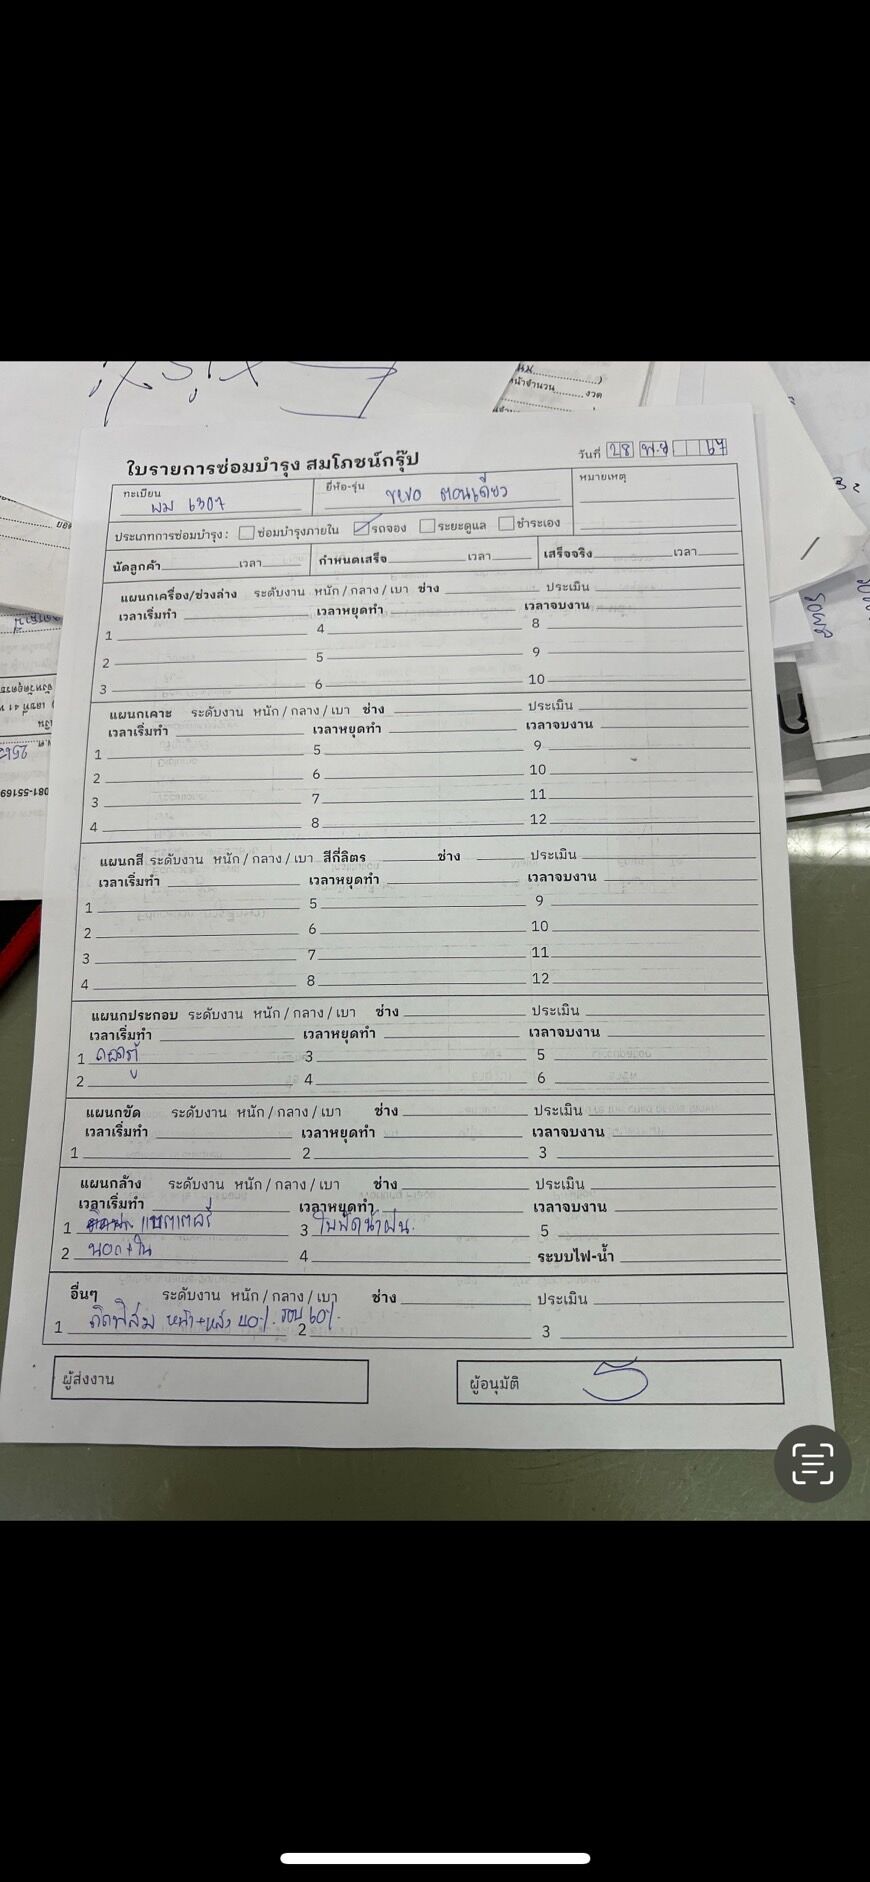 ใบรายการซ่อมบำรุง สมโภชน์กรุ๊ป
วันที่ 28 พ.ย 67
ทะเบียน ผม 6307 ยี่ห้อ-รุ่น revo ตอนเดียว หมายเหตุ
ประเภทการซ่อมบำรุง : ซ่อมบำรุงภายใน รถจอง ระยะดูแล ชำระเอง
นัดลูกค้า เวลา กำหนดเสร็จ เวลา เสร็จจริง เวลา
แผนกเครื่อง/ช่วงล่าง ระดับงาน หนัก / กลาง / เบา ช่าง ประเมิน
เวลาเริ่มทำ เวลาหยุดทำ เวลาจบงาน
1 4 8
2 5 9
3 6 10
แผนกเคาะ ระดับงาน หนัก / กลาง / เบา ช่าง ประเมิน
เวลาเริ่มทำ เวลาหยุดทำ เวลาจบงาน
1 5 9
2 6 10
3 7 11
4 8 12
แผนกสี ระดับงาน หนัก / กลาง / เบา สีกี่ลิตร ช่าง ประเมิน
เวลาเริ่มทำ เวลาหยุดทำ เวลาจบงาน
1 5 9
2 6 10
3 7 11
4 8 12
แผนกประกอบ ระดับงาน หนัก / กลาง / เบา ช่าง ประเมิน
เวลาเริ่มทำ เวลาหยุดทำ เวลาจบงาน
1 ถอดตู้ 3 5
2 4 6
แผนกขัด ระดับงาน หนัก / กลาง / เบา ช่าง ประเมิน
เวลาเริ่มทำ เวลาหยุดทำ เวลาจบงาน
1 2 3
แผนกล้าง ระดับงาน หนัก / กลาง / เบา ช่าง ประเมิน
เวลาเริ่มทำ เวลาหยุดทำ เวลาจบงาน
1 แบตเตอรี่ 3 ใบปัดน้ำฝน. 5
2 นอก+ใน 4 ระบบไฟ-น้ำ
อื่นๆ ระดับงาน หนัก / กลาง / เบา ช่าง ประเมิน
1 ติดฟิล์ม หน้า+หลัง 40%. รอบ 60%. 2 3
ผู้ส่งงาน ผู้อนุมัติ